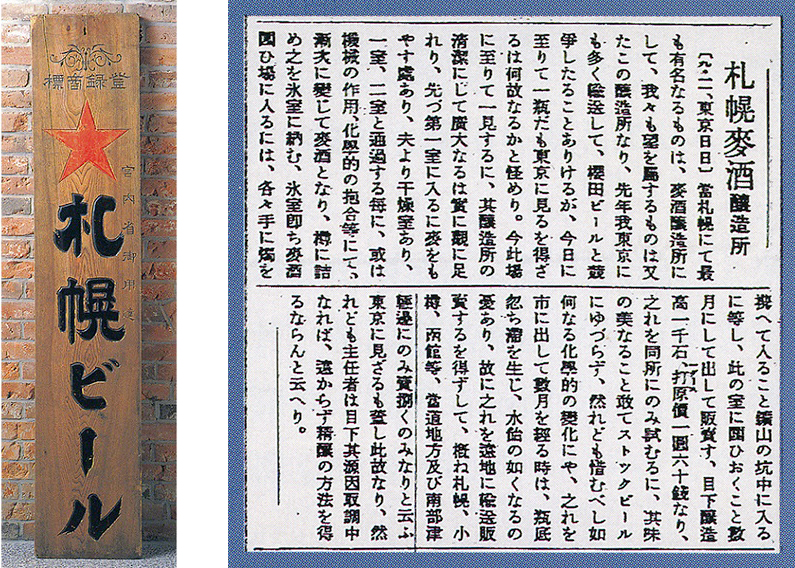 登録商標
宮内省御用達
札幌ビール
札幌麥酒醸造所
〔九・二、東京日日〕當札幌にて最
も有名なるものは、麥酒醸造所に
して、我々も望を屬するものは又
たこの醸造所なり、先年我東京に
も多く輸送して、櫻田ビールと競
爭したることありけるが、今日に
至りて一瓶だも東京に見るを得ざ
るは何故なるかと怪めり。今此場
に至りて一見するに、其醸造所の
清潔にして廣大なるは實に觀に足
れり、先づ第一室に入るに麥をも
やす處あり、夫より干燥室あり、
一室、二室と通過する毎に、或は
機械の作用、化學的の抱合等にて、
漸次に變じて麥酒となり、樽に詰
め之を氷室に納む、氷室即ち麥酒
圍ひ場に入るには、各々手に燭を
携へて入ること鑛山の坑中に入る
に等し、此の室に圍ひおくこと數
月にして出して販賣す、目下醸造
高一千石、一打原價一圓六十錢なり、
之れを同所にのみ試むるに、其味
の美なること敢てストツクビール
にゆづらず、然れども惜むべし如
何なる化學的の變化にや、之れを
市に出して數月を經る時は、瓶底
忽ち滯を生じ、水飴の如くなるの
憂あり、故に之れを遠地に輸送販
賣するを得ずして、概ね札幌、小
樽、函館等、當道地方及び南部津
輕邊にのみ賣捌くのみなりと云ふ
東京に見ざるも蓋し此故なり、然
れども主任者は目下其源因取調中
なれば、遠からず精醸の方法を得
るならんと云へり。